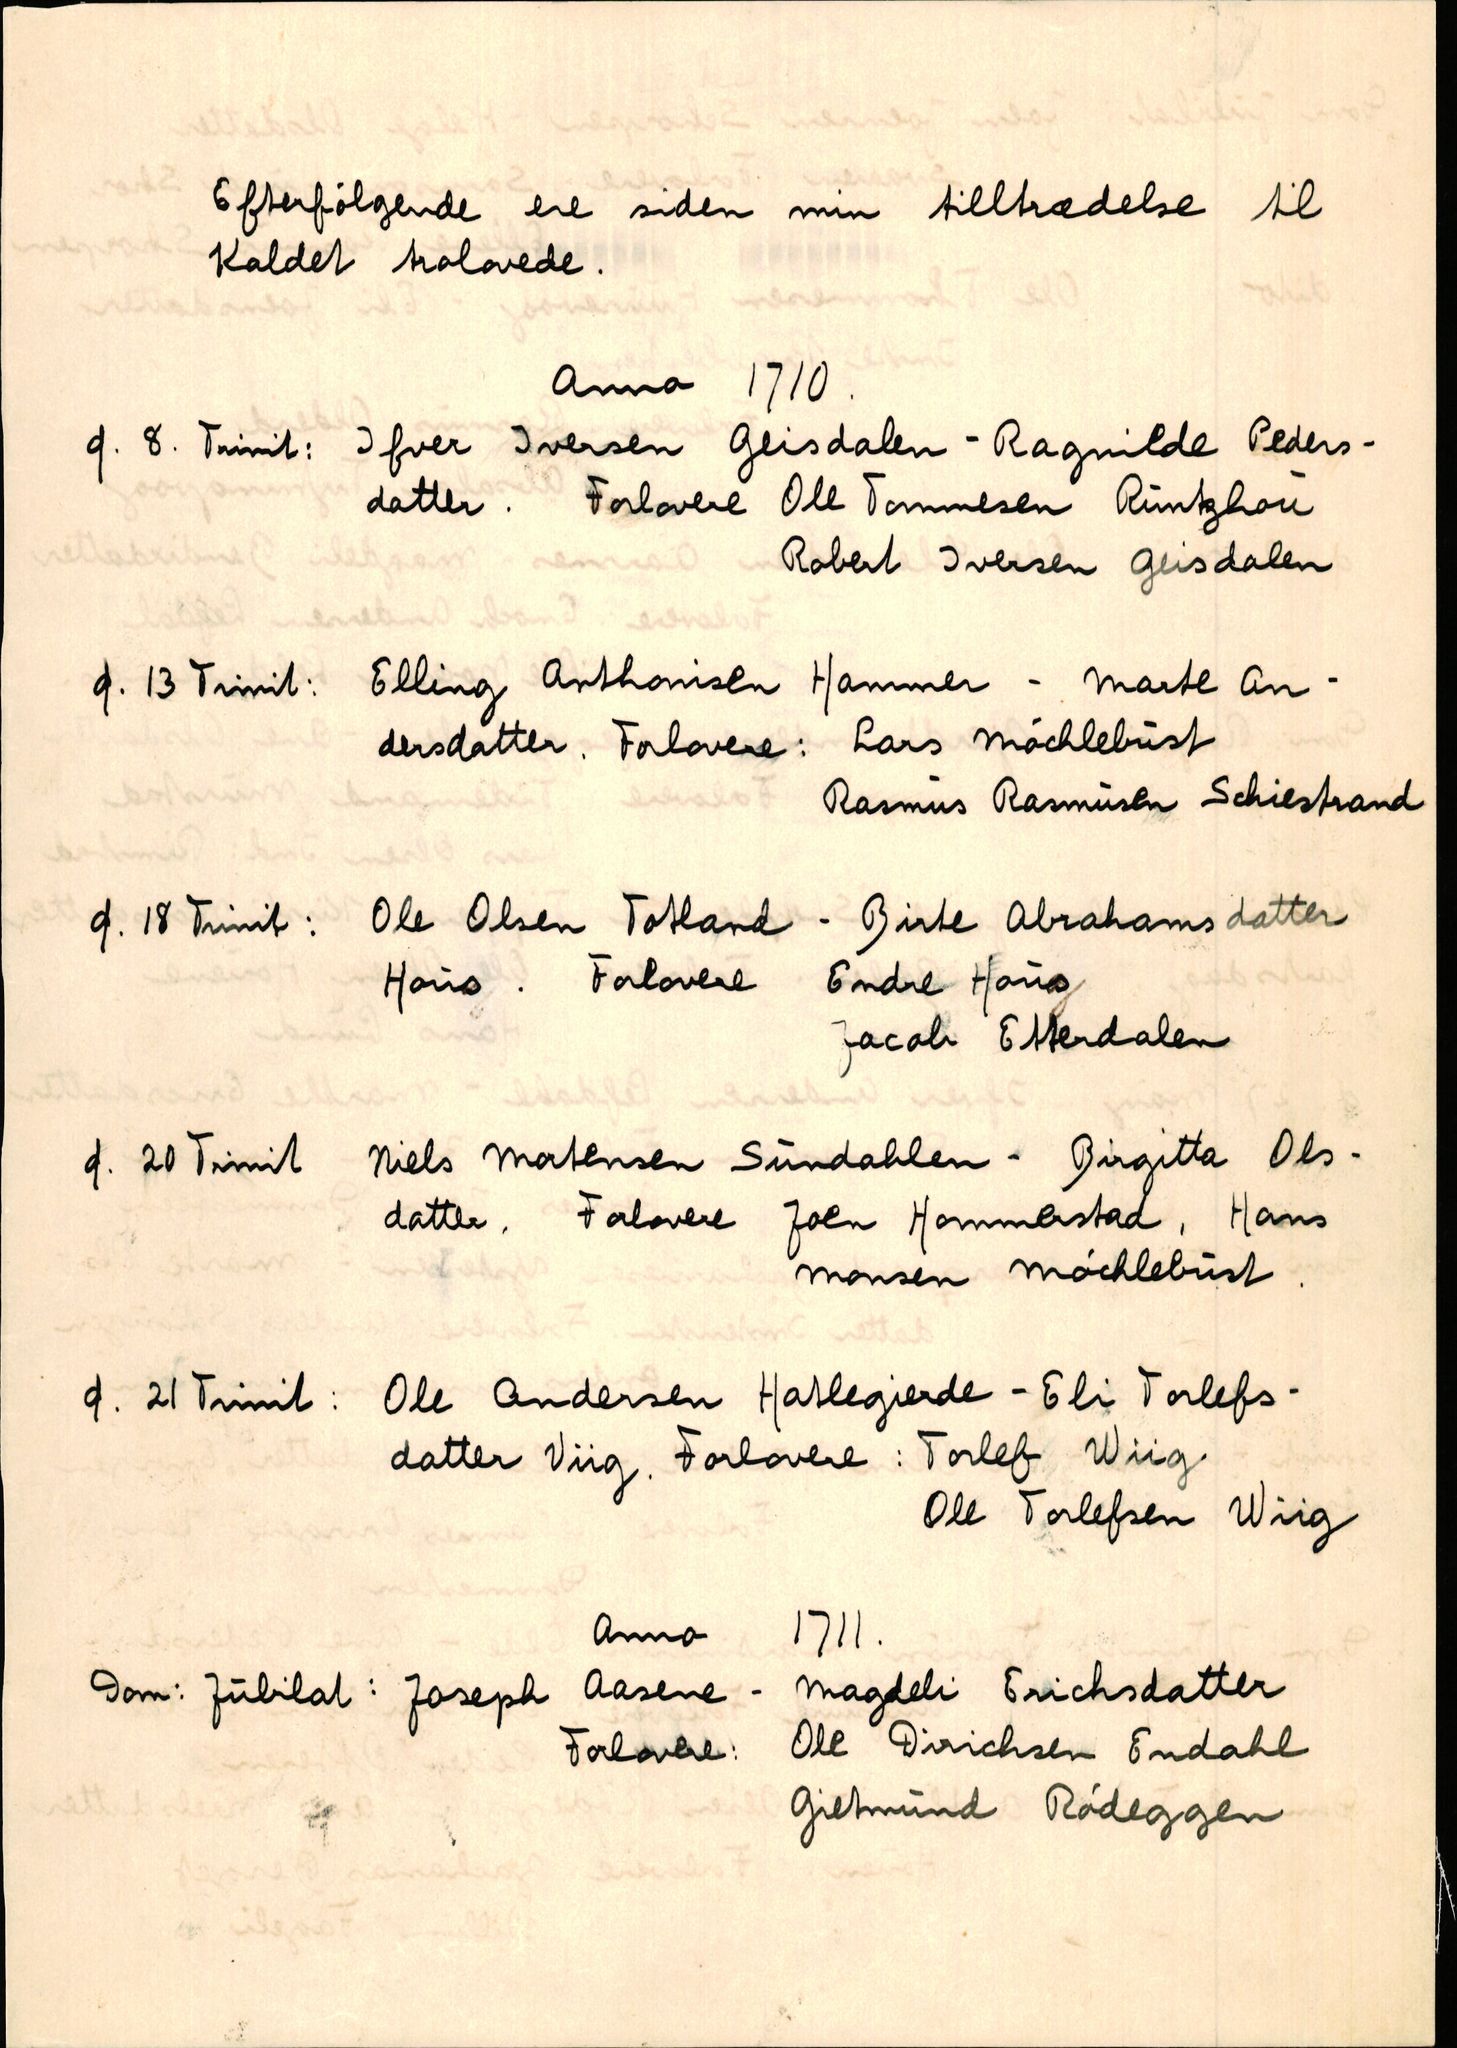 Efterfölgende ere siden min tilltrædelse til
Kaldet trolovede.
Anno 1710.
d. 8. Trinit: Ifver Iversen Geisdalen - Ragnilde Peders-
datter. Forlovere Ole Tommesen Rüntzhoü
Robert Iversen Geisdalen
d. 13 Trinit: Elling Anthonisen Hammer - Marte An-
dersdatter. Forlovere: Lars Möchlebüst
Rasmüs Rasmüsen Schiestrand
d. 18 Trinit: Ole Olsen Totland - Birte Abrahamsdatter
Haüs. Forlovere Endre Haüg
Jacob Etterdalen
d. 20 Trinit Niels Mortensen Sündahlen - Birgitta Ols-
datter. Forlovere Joen Hammerstad, Hans
Monsen Möchlebüst.
d. 21 Trinit: Ole Andersen Hatlegierde - Eli Torlefs-
datter Viig. Forlovere: Torlef Wiig
Ole Torlefsen Wiig
Anno 1711.
Dom: Jübilat: Joseph Aasene - Magdeli Erichsdatter
Forlovere: Ole Dirichsen Endahl
Gietmünd Rödeggen